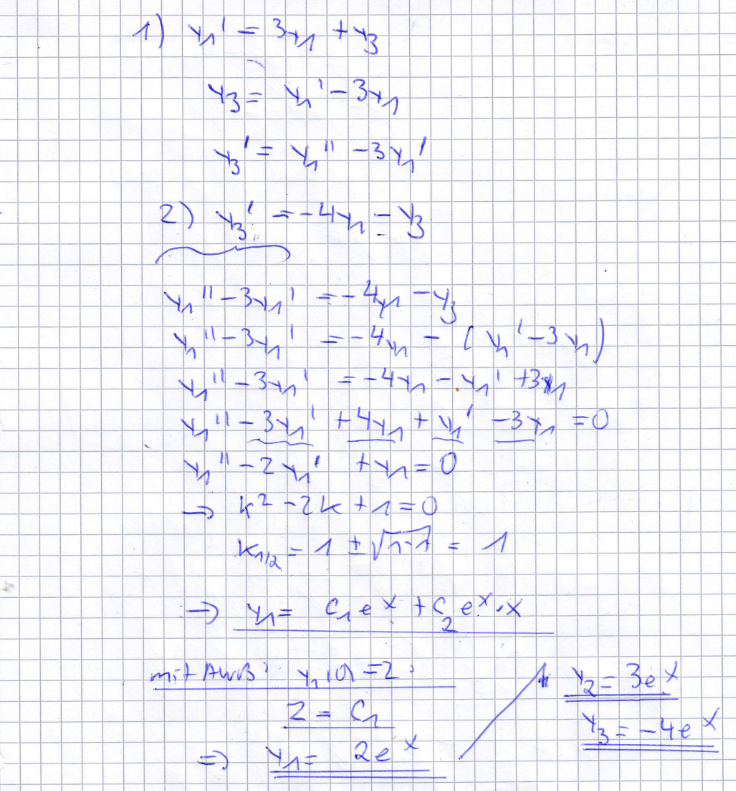 1) y₁' = 3y₁ + y₃
y₃ = y₁' - 3y₁
y₃' = y₁'' - 3y₁'
2) y₃' = -4y₁ - y₃
y₁'' - 3y₁' = -4y₁ - y₃
y₁'' - 3y₁' = -4y₁ - (y₁' - 3y₁)
y₁'' - 3y₁' = -4y₁ - y₁' + 3y₁
y₁'' - 3y₁' + 4y₁ + y₁' - 3y₁ = 0
y₁'' - 2y₁' + y₁ = 0
→ k² - 2k + 1 = 0
k₁/₂ = 1 ± √1-1 = 1
→ y₁ = C₁eˣ + C₂eˣ·x
mit AWB: y₁(0) = 2:
2 = C₁
⇒ y₁ = 2eˣ
y₂ = 3eˣ
y₃ = -4eˣ